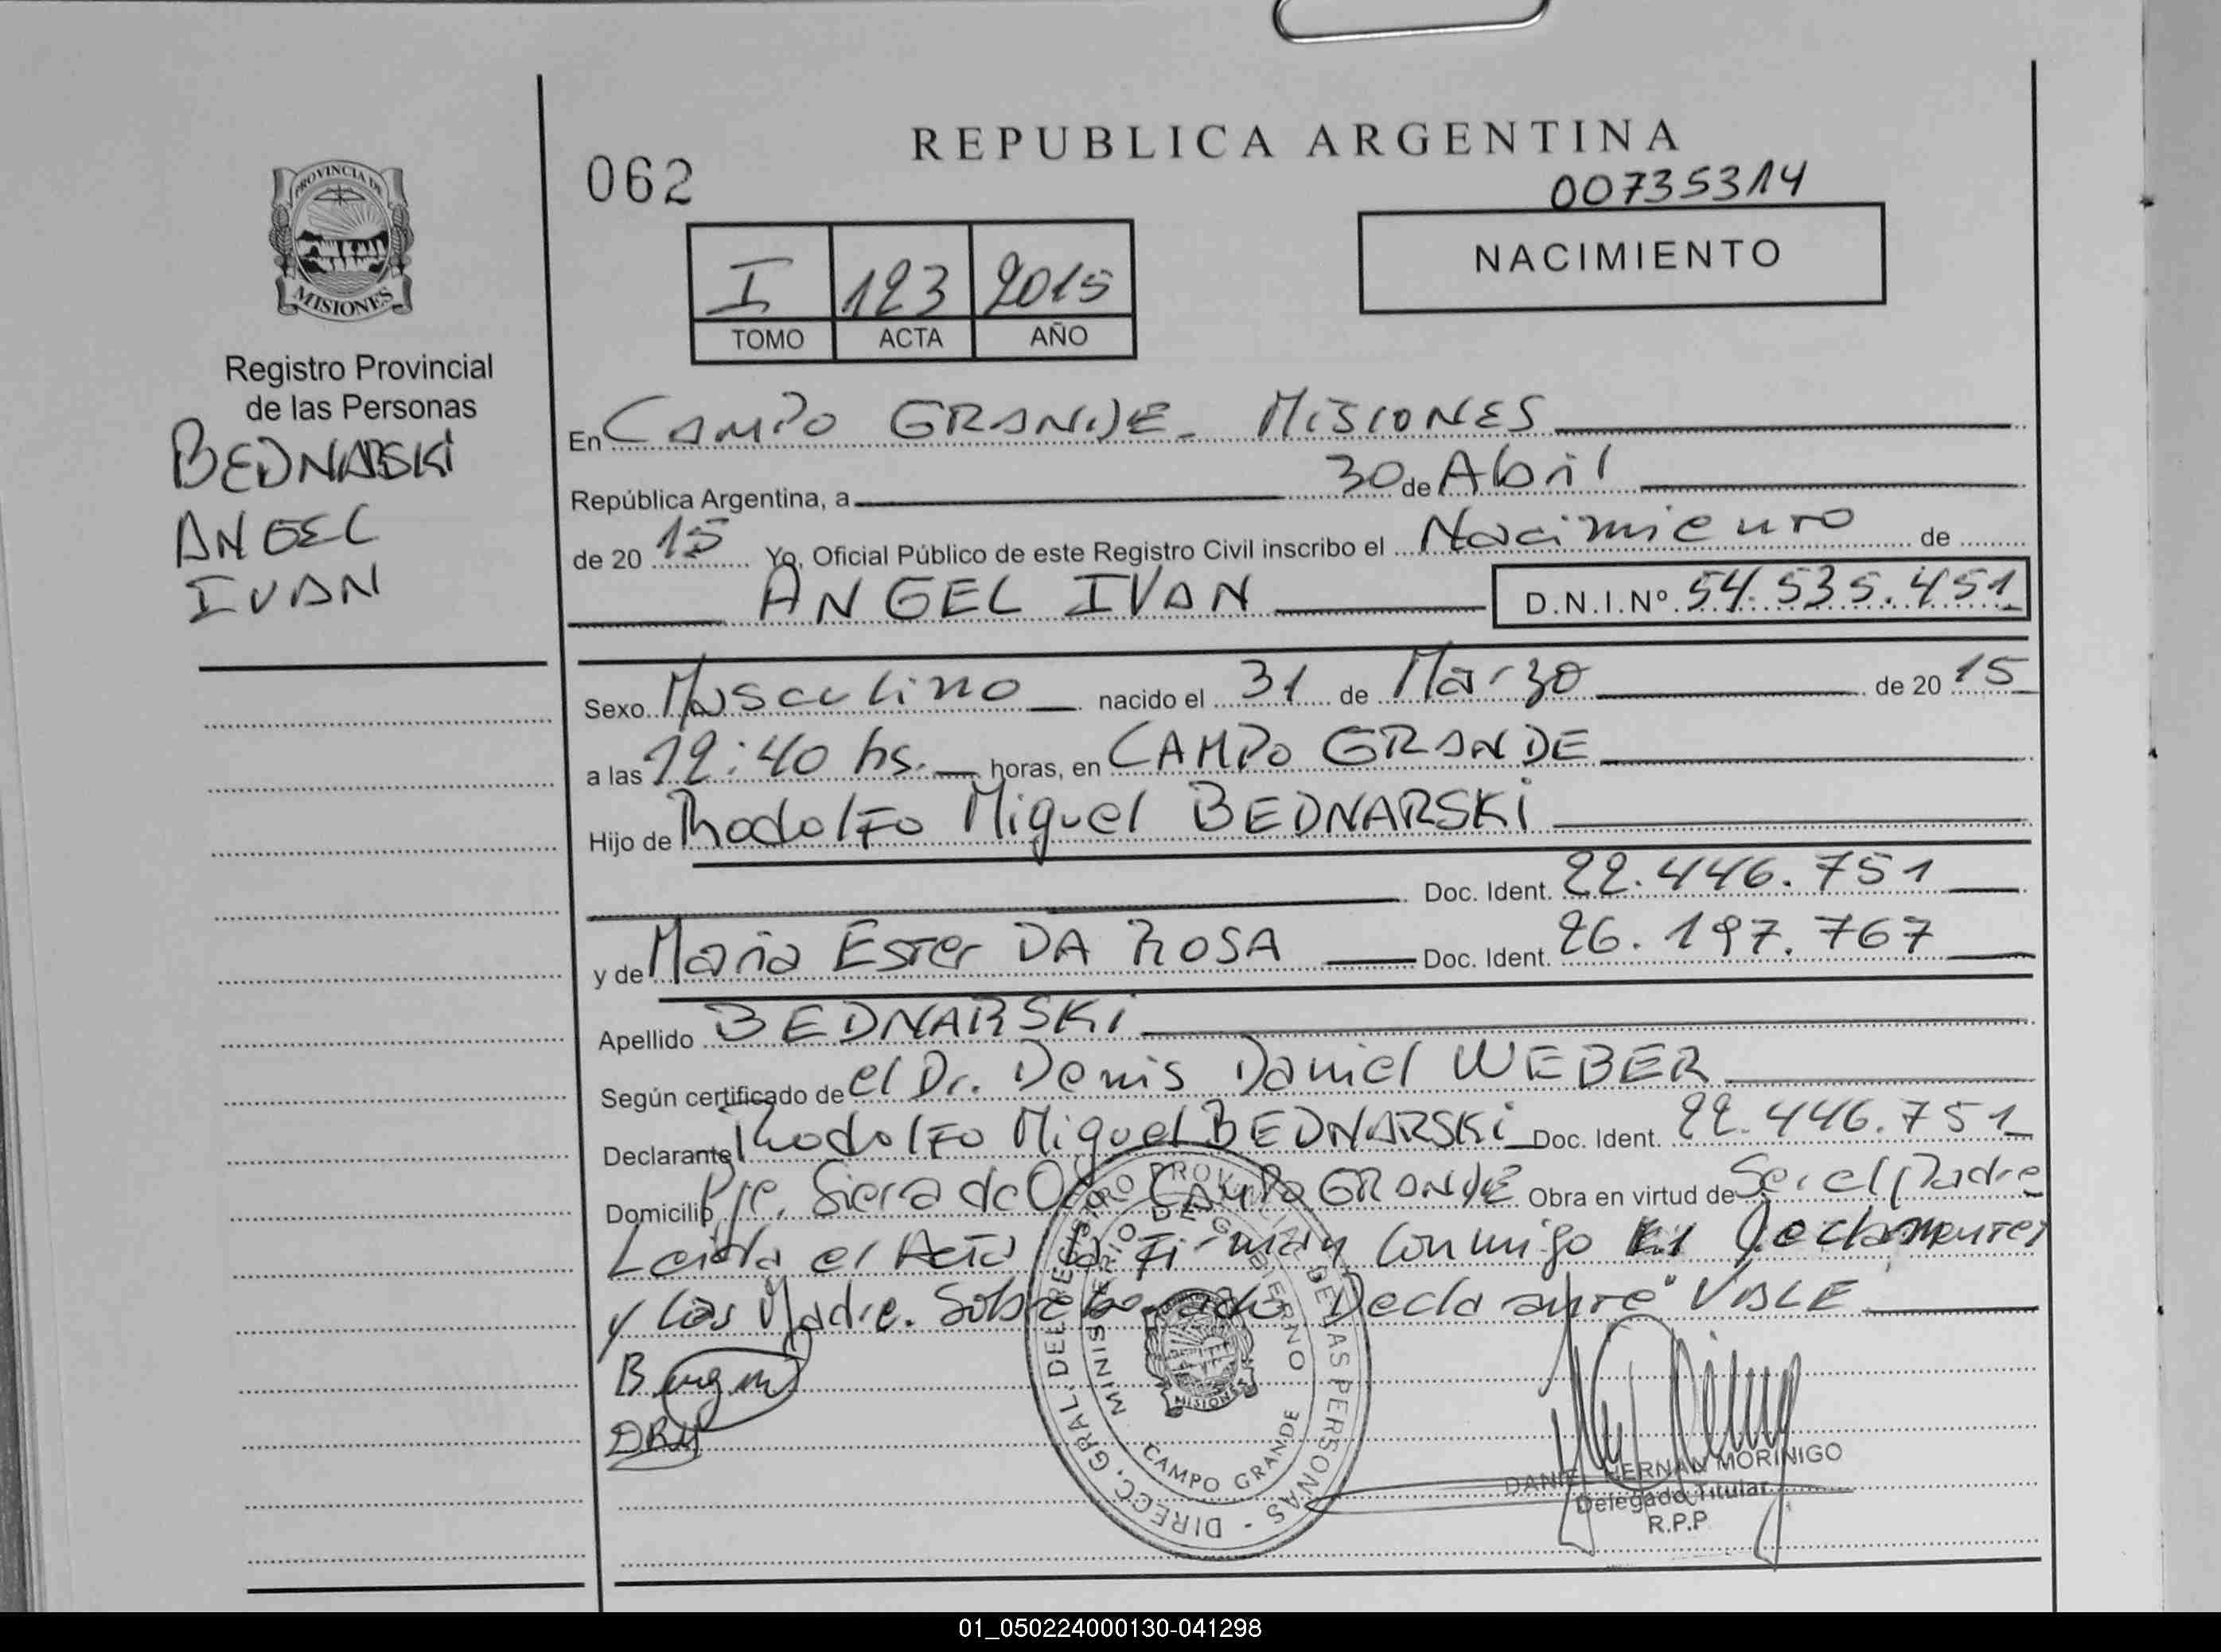 REPUBLICA ARGENTINA
062
00735314
NACIMIENTO
I 123 2015
TOMO ACTA AÑO
PROVINCIA DE
MISIONES
Registro Provincial
de las Personas
BEDNARSKI
ANGEL
IVAN
En CAMPO GRANDE - MISIONES
República Argentina, a 30 de Abril
de 20 15 Yo, Oficial Público de este Registro Civil inscribo el Nacimiento de
ANGEL IVAN D.N.I.Nº 54.535.451
Sexo Masculino nacido el 31 de Marzo de 20 15
a las 12:40 hs. horas, en CAMPO GRANDE
Hijo de Rodolfo Miguel BEDNARSKI
Doc. Ident. 22.446.751
y de Maria Ester DA ROSA Doc. Ident. 26.197.767
Apellido BEDNARSKI
Según certificado de el Dr. Denis Daniel WEBER
Declarante Rodolfo Miguel BEDNARSKI Doc. Ident. 22.446.751
Domicilio Pje. Siera de CAMPO GRANDE Obra en virtud de Ser el Padre
Leida el Acta la Firman Conmigo
y Madre. Sobre Declarante" VALE
DIRECC. GRAL. DEL REGISTRO PROVINCIAL DE LAS PERSONAS -
MINISTERIO DE GOBIERNO
MISIONES
CAMPO GRANDE
DANIEL HERNAN MORINIGO
Delegado Titular
R.P.P
01_050224000130-041298